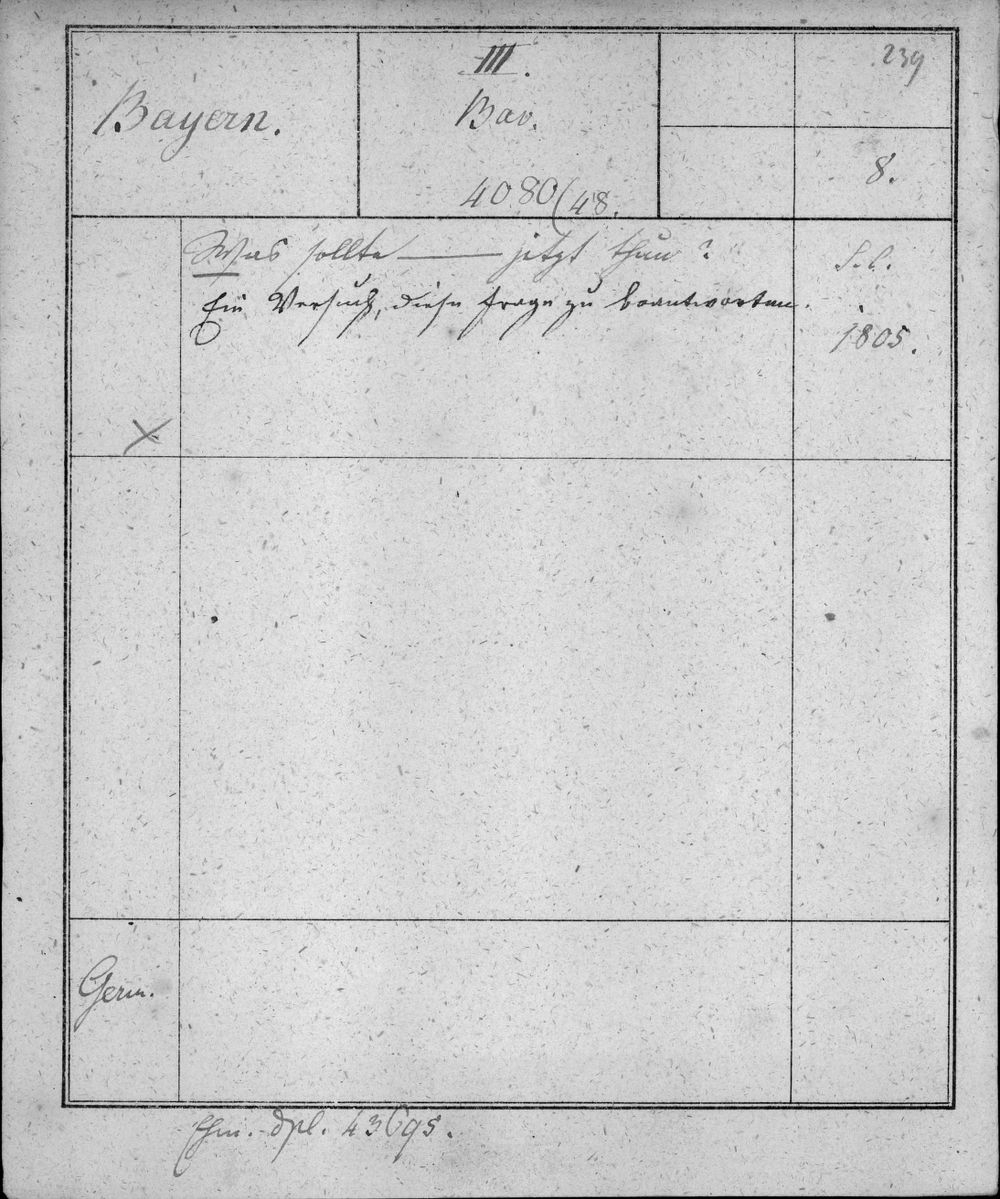 239
III.
Bayern.
Bav.
8.
4080(48.
Was sollte ——— jetzt thun?
S. l.
Ein Versuch, diese Frage zu beantworten.
1805.
X
Germ.
dpl. 43695.